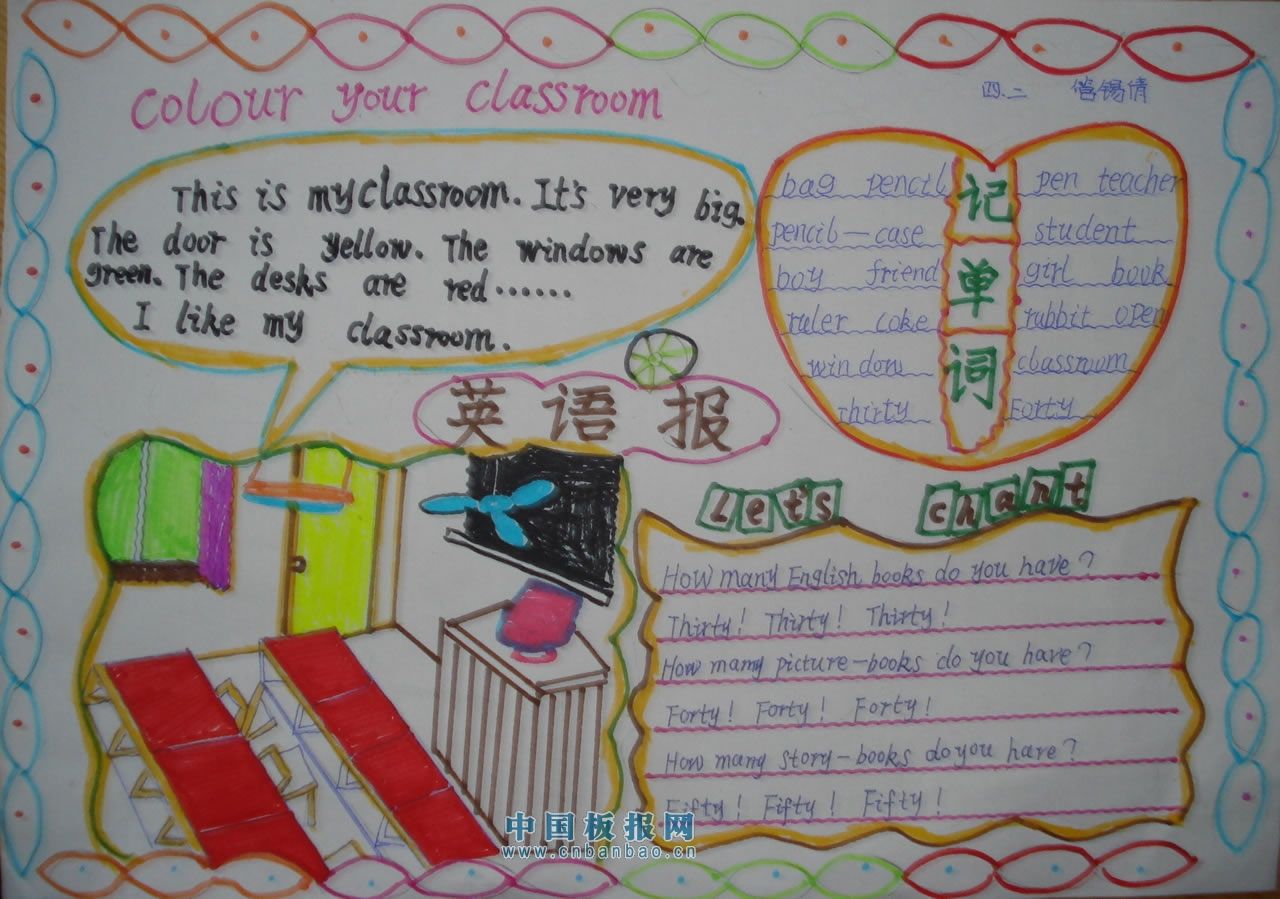 Colour your classroom
四.二 管锡倩
This is my classroom. It's very big.
The door is yellow. The windows are
green. The desks are red……
I like my classroom.
英语报
记单词
bag pencil pen teacher
pencil-case student
boy friend girl book
ruler coke rubbit open
window classroom
thirty Forty
Let's chant
How many English books do you have?
Thirty! Thirty! Thirty!
How mamy picture-books do you have?
Forty! Forty! Forty!
How many story-books do you have?
Fifty! Fifty! Fifty!
中国板报网
www.cnbanbao.cn